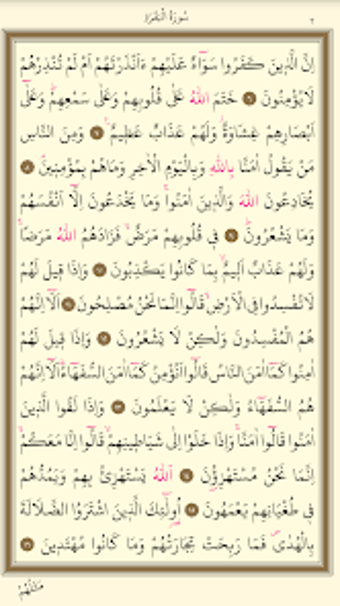 سُورَةُ الْبَقَرَةِ ٢
اِنَّ الَّذ۪ينَ كَفَرُوا سَوَٓاءٌ عَلَيْهِمْ ءَاَنْذَرْتَهُمْ اَمْ لَمْ تُنْذِرْهُمْ
لَا يُؤْمِنُونَ ﴿٦﴾ خَتَمَ اللّٰهُ عَلٰى قُلُوبِهِمْ وَعَلٰى سَمْعِهِمْۜ وَعَلٰٓى
اَبْصَارِهِمْ غِشَاوَةٌۘ وَلَهُمْ عَذَابٌ عَظ۪يمٌ۟ ﴿٧﴾ وَمِنَ النَّاسِ
مَنْ يَقُولُ اٰمَنَّا بِاللّٰهِ وَبِالْيَوْمِ الْاٰخِرِ وَمَا هُمْ بِمُؤْمِن۪ينَۢ ﴿٨﴾
يُخَادِعُونَ اللّٰهَ وَالَّذ۪ينَ اٰمَنُواۚ وَمَا يَخْدَعُونَ اِلَّٓا اَنْفُسَهُمْ
وَمَا يَشْعُرُونَۜ ﴿٩﴾ ف۪ي قُلُوبِهِمْ مَرَضٌۙ فَزَادَهُمُ اللّٰهُ مَرَضاًۚ
وَلَهُمْ عَذَابٌ اَل۪يمٌۙ بِمَا كَانُوا يَكْذِبُونَ ﴿١٠﴾ وَاِذَا ق۪يلَ لَهُمْ
لَا تُفْسِدُوا فِي الْاَرْضِۙ قَالُٓوا اِنَّمَا نَحْنُ مُصْلِحُونَ ﴿١١﴾ اَلَٓا اِنَّهُمْ
هُمُ الْمُفْسِدُونَ وَلٰكِنْ لَا يَشْعُرُونَ ﴿١٢﴾ وَاِذَا ق۪يلَ لَهُمْ
اٰمِنُوا كَمَٓا اٰمَنَ النَّاسُ قَالُٓوا اَنُؤْمِنُ كَمَٓا اٰمَنَ السُّفَهَٓاءُۜ اَلَٓا اِنَّهُمْ
هُمُ السُّفَهَٓاءُ وَلٰكِنْ لَا يَعْلَمُونَ ﴿١٣﴾ وَاِذَا لَقُوا الَّذ۪ينَ
اٰمَنُوا قَالُٓوا اٰمَنَّاۚ وَاِذَا خَلَوْا اِلٰى شَيَاط۪ينِهِمْۙ قَالُٓوا اِنَّا مَعَكُمْۙ
اِنَّمَا نَحْنُ مُسْتَهْزِؤُ۫نَ ﴿١٤﴾ اَللّٰهُ يَسْتَهْزِئُ بِهِمْ وَيَمُدُّهُمْ
ف۪ي طُغْيَانِهِمْ يَعْمَهُونَ ﴿١٥﴾ اُو۬لٰٓئِكَ الَّذ۪ينَ اشْتَرَوُا الضَّلَالَةَ
بِالْهُدٰىۖ فَمَا رَبِحَتْ تِجَارَتُهُمْ وَمَا كَانُوا مُهْتَد۪ينَ ﴿١٦﴾
مَثَلُهُمْ